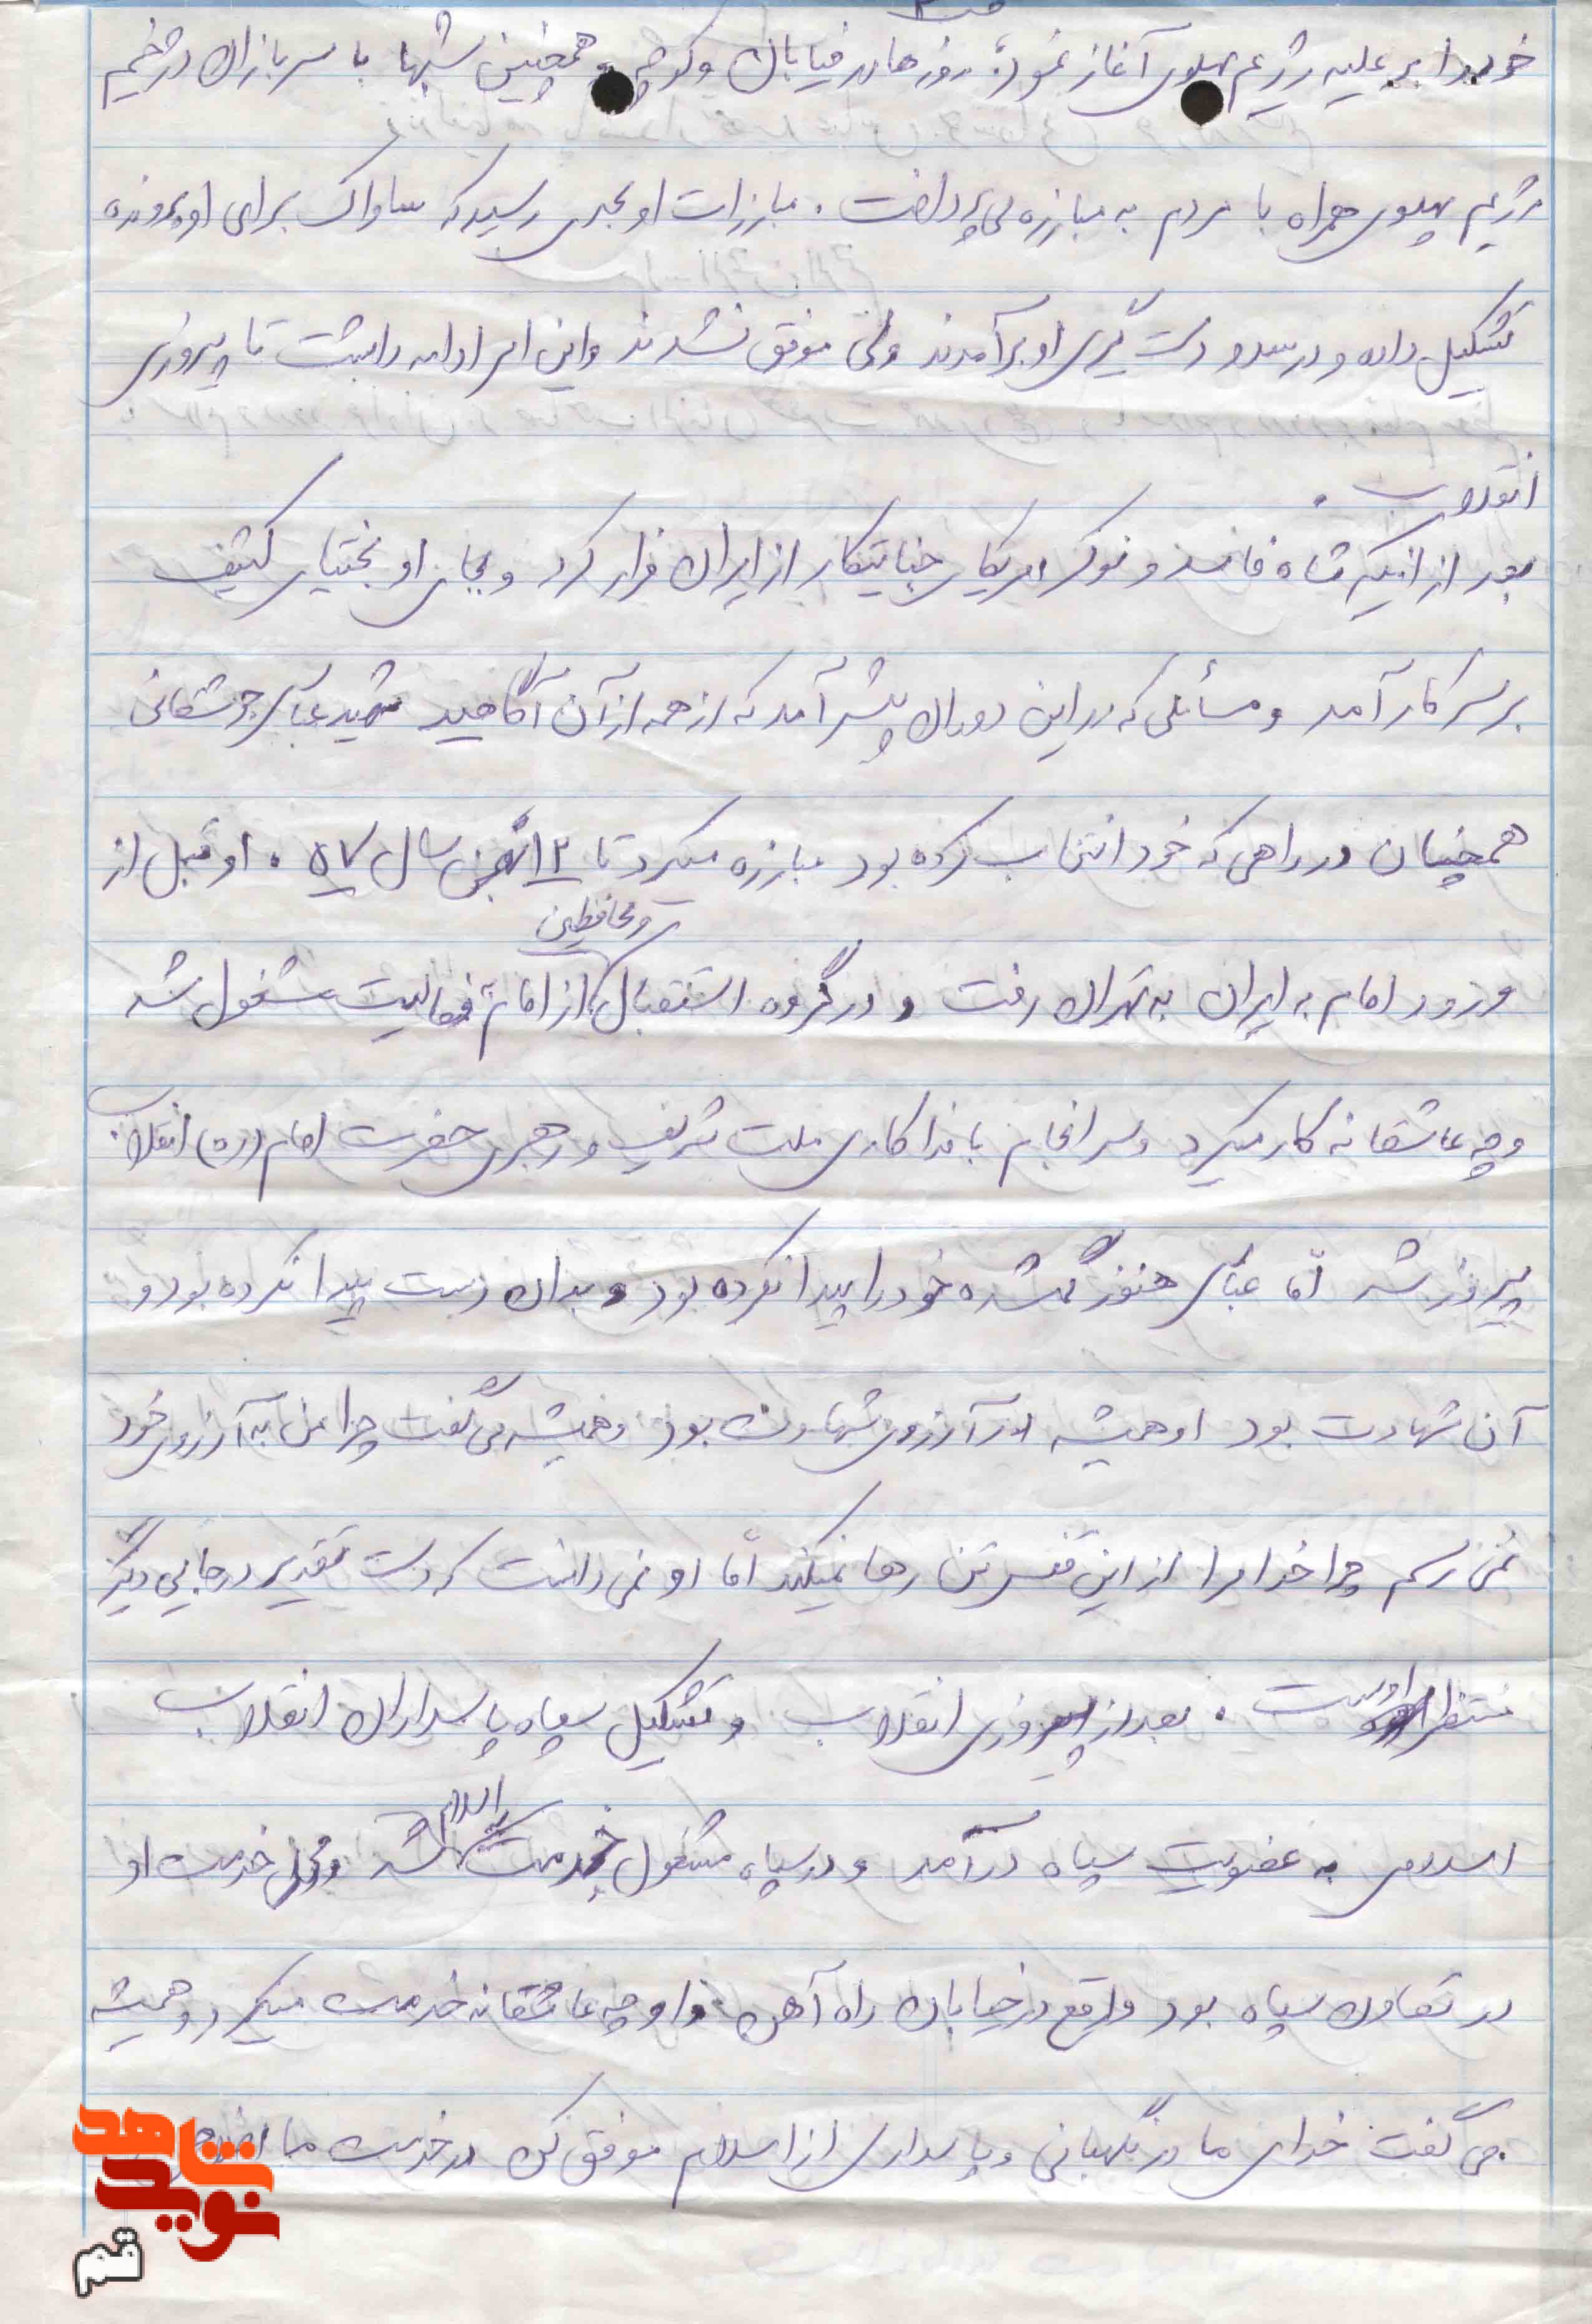 خود را بر علیه رژیم پهلوی آغاز نمود، روزها در خیابان و کوچه و همچنین شبها با سربازان دژخیم
رژیم پهلوی همراه با مردم به مبارزه می پرداخت . مبارزات او بحدی رسید که ساواک برای او پرونده
تشکیل داده و درصدد دست گیری او برآمدند ولی موفق نشدند و این امر ادامه داشت تا پیروزی
انقلاب .
بعد از اینکه شاه فاسد و نوکر امریکای جنایتکار از ایران فرار کرد و بجای او بختیار کثیف
بر سر کار آمد و مسائلی که در این دوران پیش آمد که از همه از آن آگاهید شهید عباس جوشقانی
همچنان در راهی که خود انتخاب کرده بود مبارزه میکرد تا ۱۲ بهمن سال ۵۷ . او قبل از
و محافظین
ورود امام به ایران به تهران رفت و در گروه استقبال از امام به فعالیت مشغول شد
و چه عاشقانه کار میکرد و سرانجام با فداکاری ملت شریف و رهبری حضرت امام (ره) انقلاب
پیروز شد امّا عباس هنوز گمشده خود را پیدا نکرده بود و بدان دست پیدا نکرده بود و
آن شهادت بود او همیشه در آرزوی شهادت بود و همیشه می گفت چرا من به آرزوی خود
نمی رسم چرا خدا مرا از این قفس تن رها نمیکند امّا او نمی دانست که دست تقدیر در جایی دیگر
منتظر اوست . بعد از پیروزی انقلاب و تشکیل سپاه پاسداران انقلاب
اسلامی به عضویت سپاه درآمد و در سپاه مشغول خدمت به اسلام شد و محل خدمت او
در تعاون سپاه بود واقع در خیابان راه آهن و او چه عاشقانه خدمت میکرد و همیشه
می گفت خدای ما در نگهبانی و پاسداری از اسلام موفق کن در خدمت ما
شاهد
نوید
قم